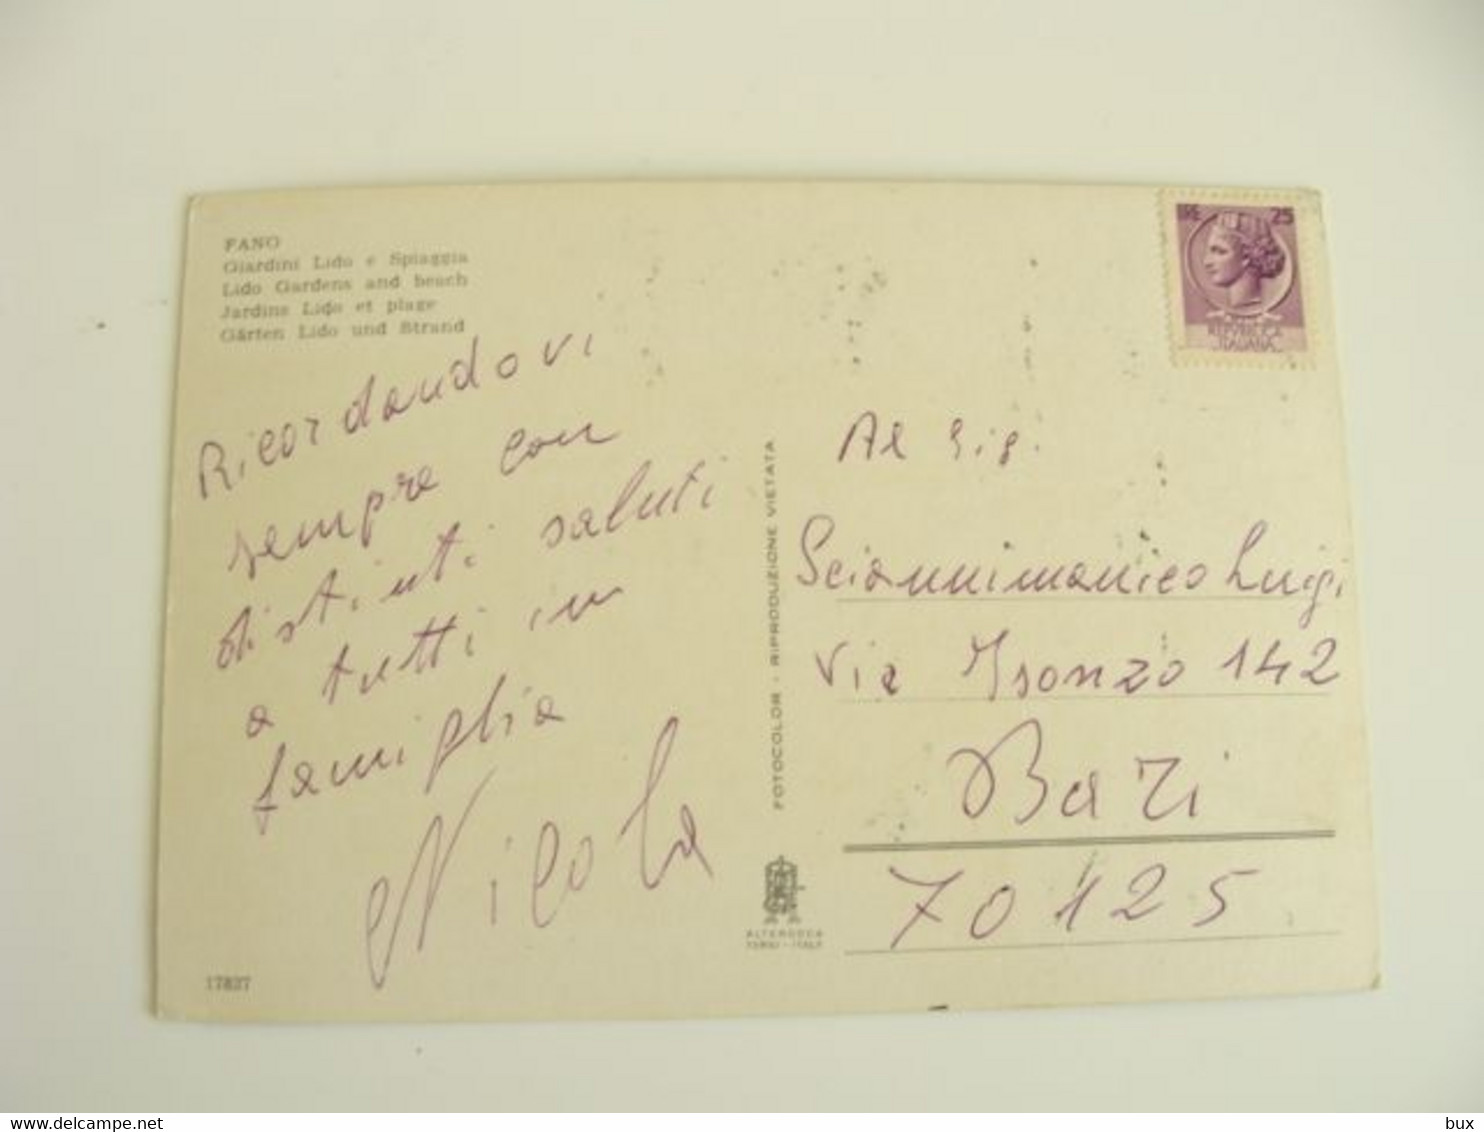 FANO
Giardini Lido e Spiaggia
Lido Gardens and beach
Jardins Lido et plage
Gärten Lido und Strand
Ricordandovi
sempre con
distinti saluti
a tutti in
famiglia
Nicola
17837
FOTOCOLOR - RIPRODUZIONE VIETATA
ALTEROCCA
TERNI - ITALY
LIRE 25
REPVBBLICA
ITALIANA
Al Sig.
Sciannimanico Luigi
Via Isonzo 142
Bari
70125
www.delcampe.net
bux